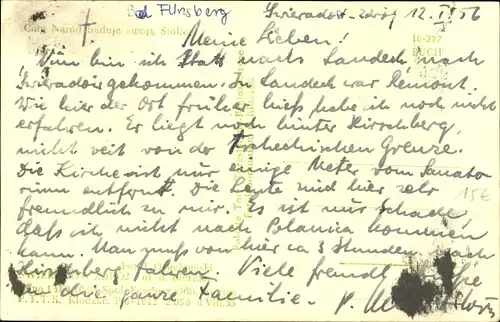 Bad Flinsberg
Świeradów-Zdrój 12.I.56
Cały Naród buduje swoją Stolicę
Meine Lieben!
16-227
RUCH
Nun bin ich statt nach Landeck nach
Świeradów gekommen. In Landeck war Remont.
Wie hier der Ort früher hieß habe ich noch nicht
erfahren. Er liegt noch hinter Hirschberg,
nicht weit von der tschechischen Grenze.
Die Kirche ist nur einige Meter vom Sanato
rium entfernt. Die Leute sind hier sehr
freundlich zu mir. Es ist nur schade,
15€
daß ich nicht nach Polanica kommen
kann. Man muß von hier ca 3 Stunden nach
Hirschberg fahren. Viele freundl.
an die ganze Familie. P.